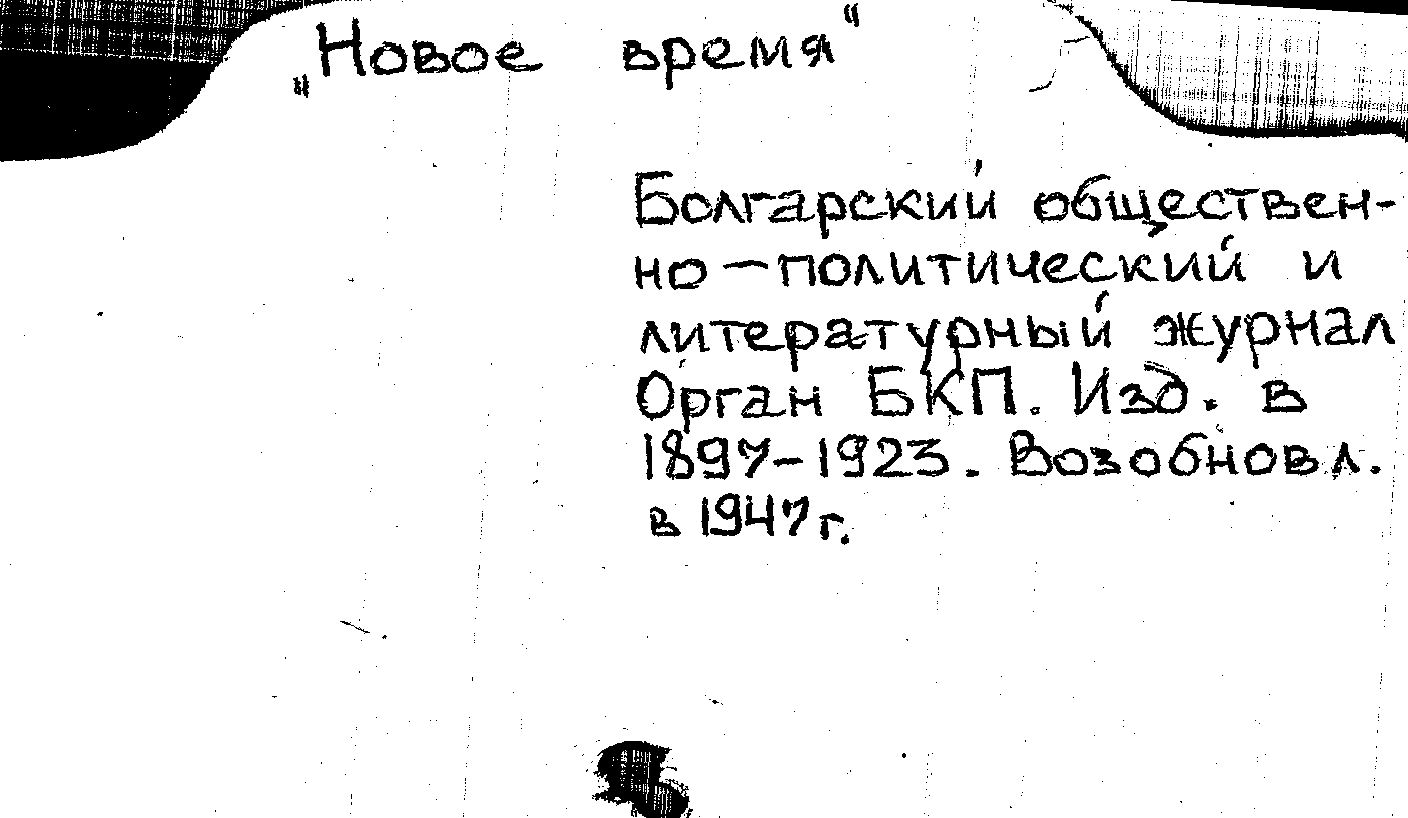 „Новое время“
Болгарский обществен-
но-политический и
литературный журнал
Орган БКП. Изд. в
1897-1923. Возобновл.
в 1947 г.